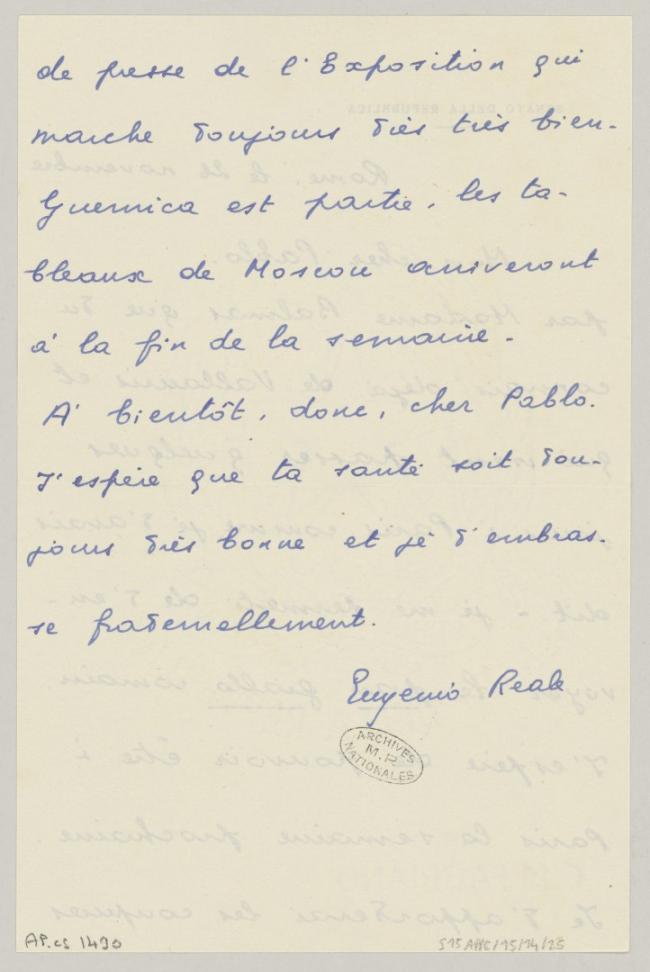 de presse de l'Exposition qui
marche toujours très très bien.
Guernica est partie, les ta-
bleaux de Moscou arriveront
à la fin de la semaine.
A' bientôt, donc, cher Pablo.
J'espère que ta santé soit tou-
jours très bonne et je t'embras-
se fraternellement.
Eugenio Reale
ARCHIVES
M.P.
NATIONALES
AP.cs 1490
515 AP/C/15/14/25